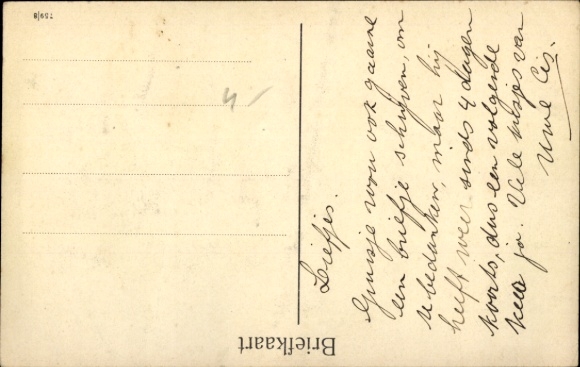 Briefkaart
759/8
Liefjes.
Guusje wou ook gaarne
een briefje schrijven, om
te bedanken, maar hij
heeft weer sinds 4 dagen
koorts, dus een volgende
keer ja. Vele kusjes van
Uwe Cis.